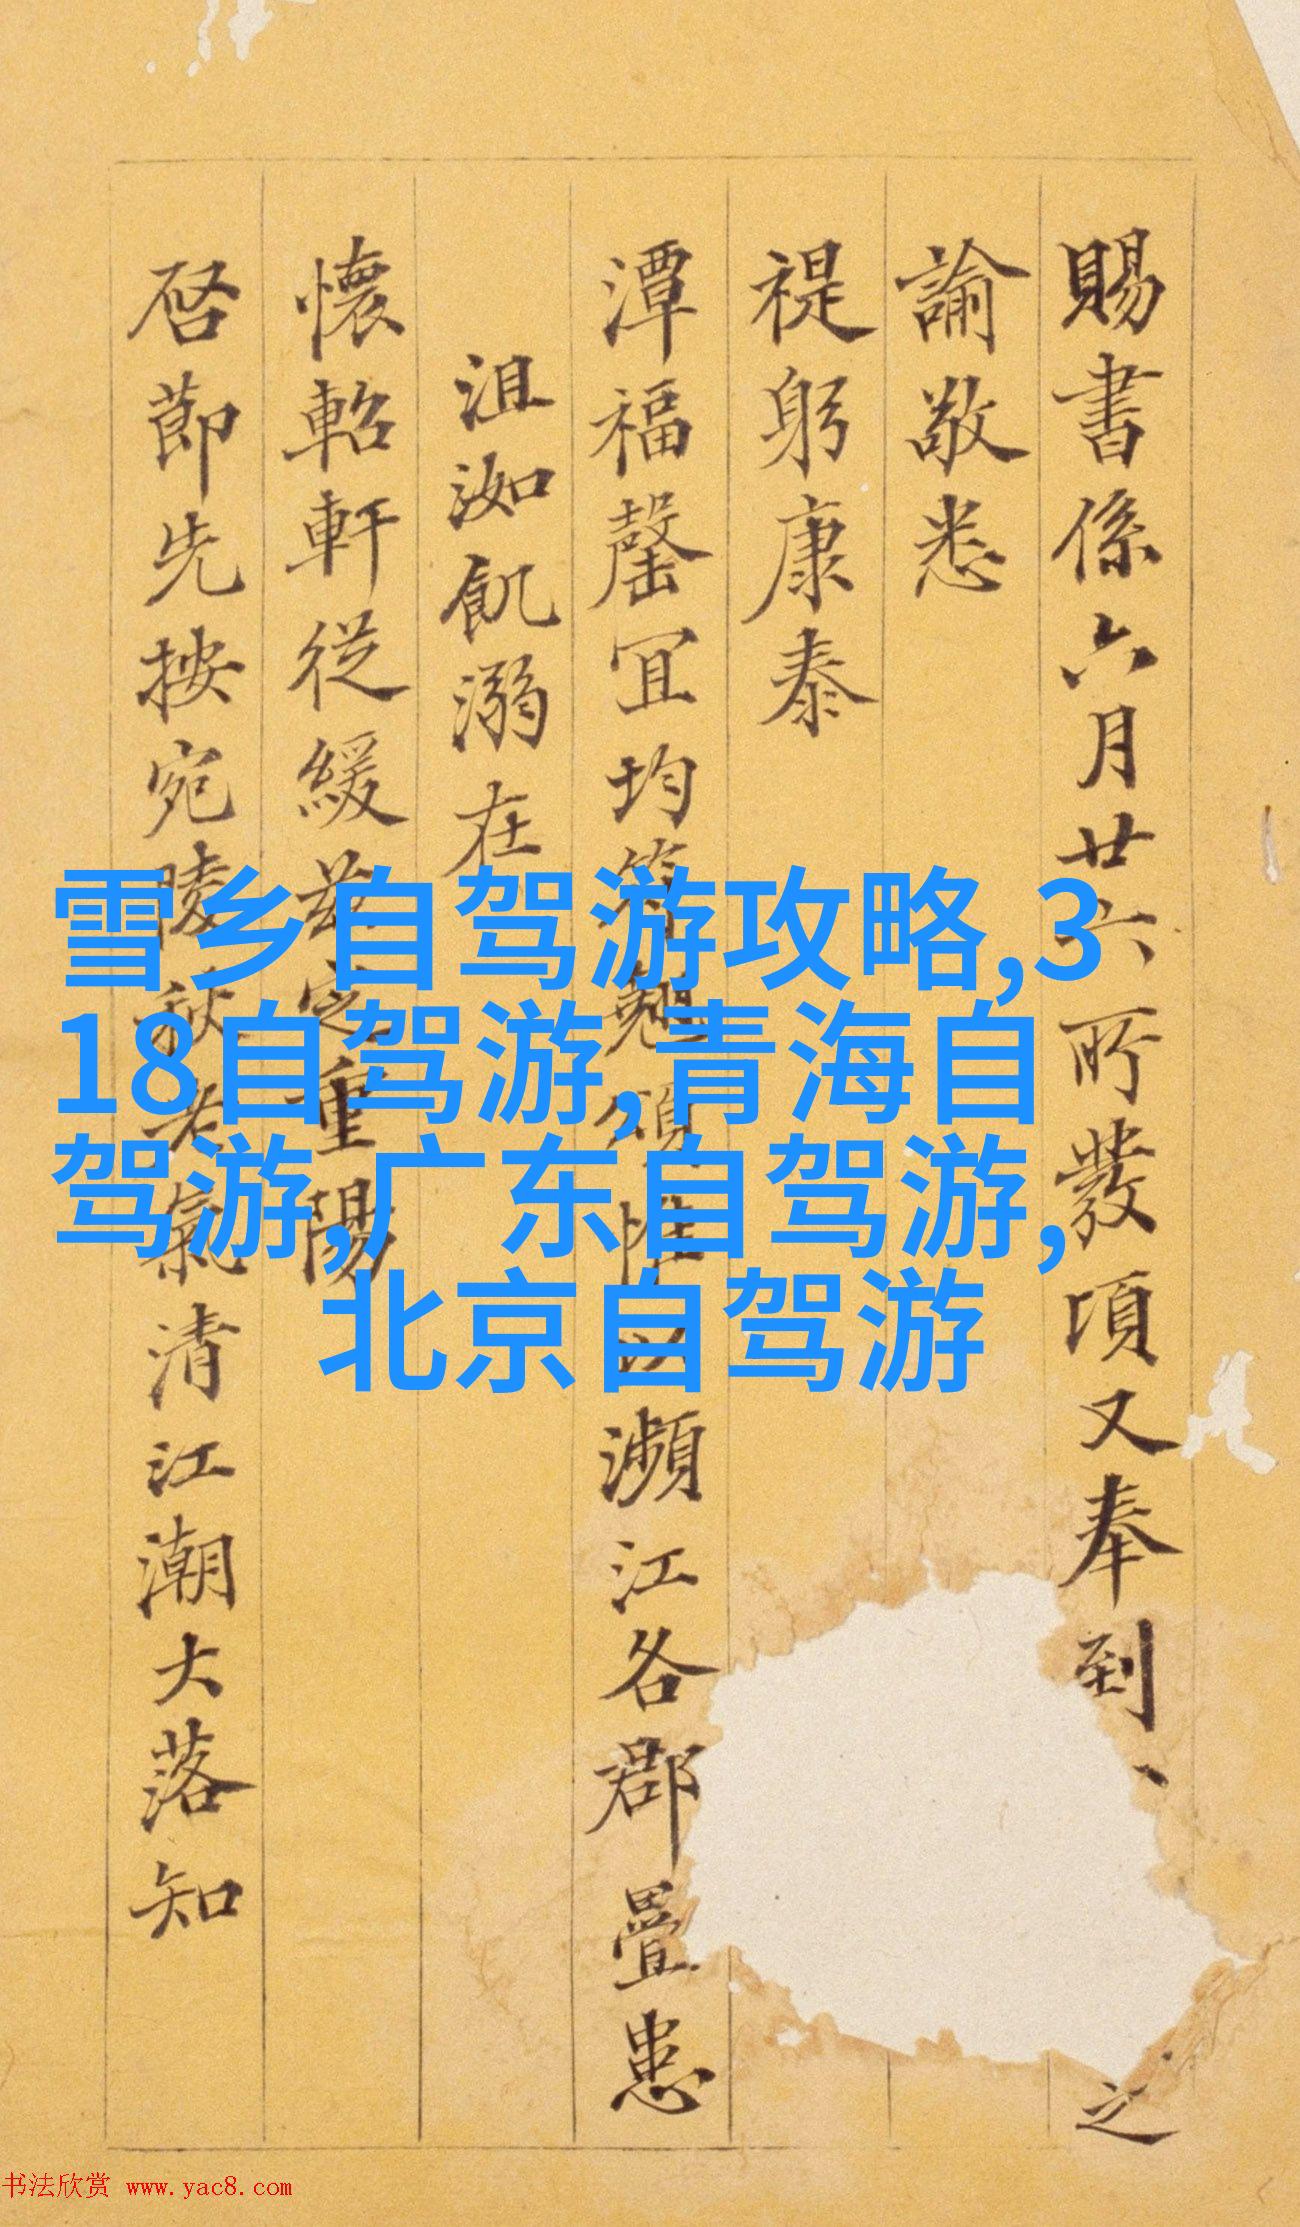 賜書係六月廿六所發頃又奉到、之
諭敬悉
禔躬康泰
潭福罄宜均符翹頌惟以瀕江各郡疊患
沮洳飢溺在
懷軺軒從緩茲定重陽
启節先按宛陵秋老氣清江潮大落知
雪乡自驾游攻略,3
18自驾游,青海自
驾游,广东自驾游,
北京自驾游
书法欣赏 www.yac8.com